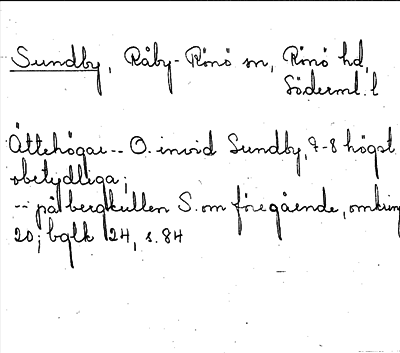 Sundby, Råby-Rönö sn, Rönö hd,
Söderml. l
Ättehögar -- O. invid Sundby, 7-8 högst
obetydliga;
-- på bergkullen S. om föregående, omkring
20; bglk 124, s. 84